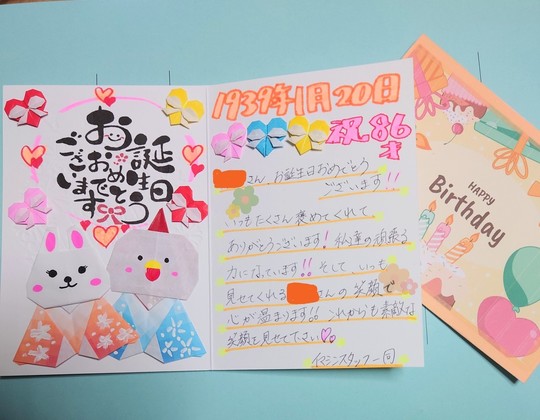 お誕生日
おめでとう
ございます
1939年1月20日
祝86才
さん、お誕生日おめでとう
ございます!!
いつもたくさん褒めてくれて
ありがとうございます!私達の頑張る
力になっています!!そして、いつも
見せてくれる さんの笑顔で
心が温まります!!これからも素敵な
笑顔を見せて下さい
スタッフ一同
HAPPY
Birthday